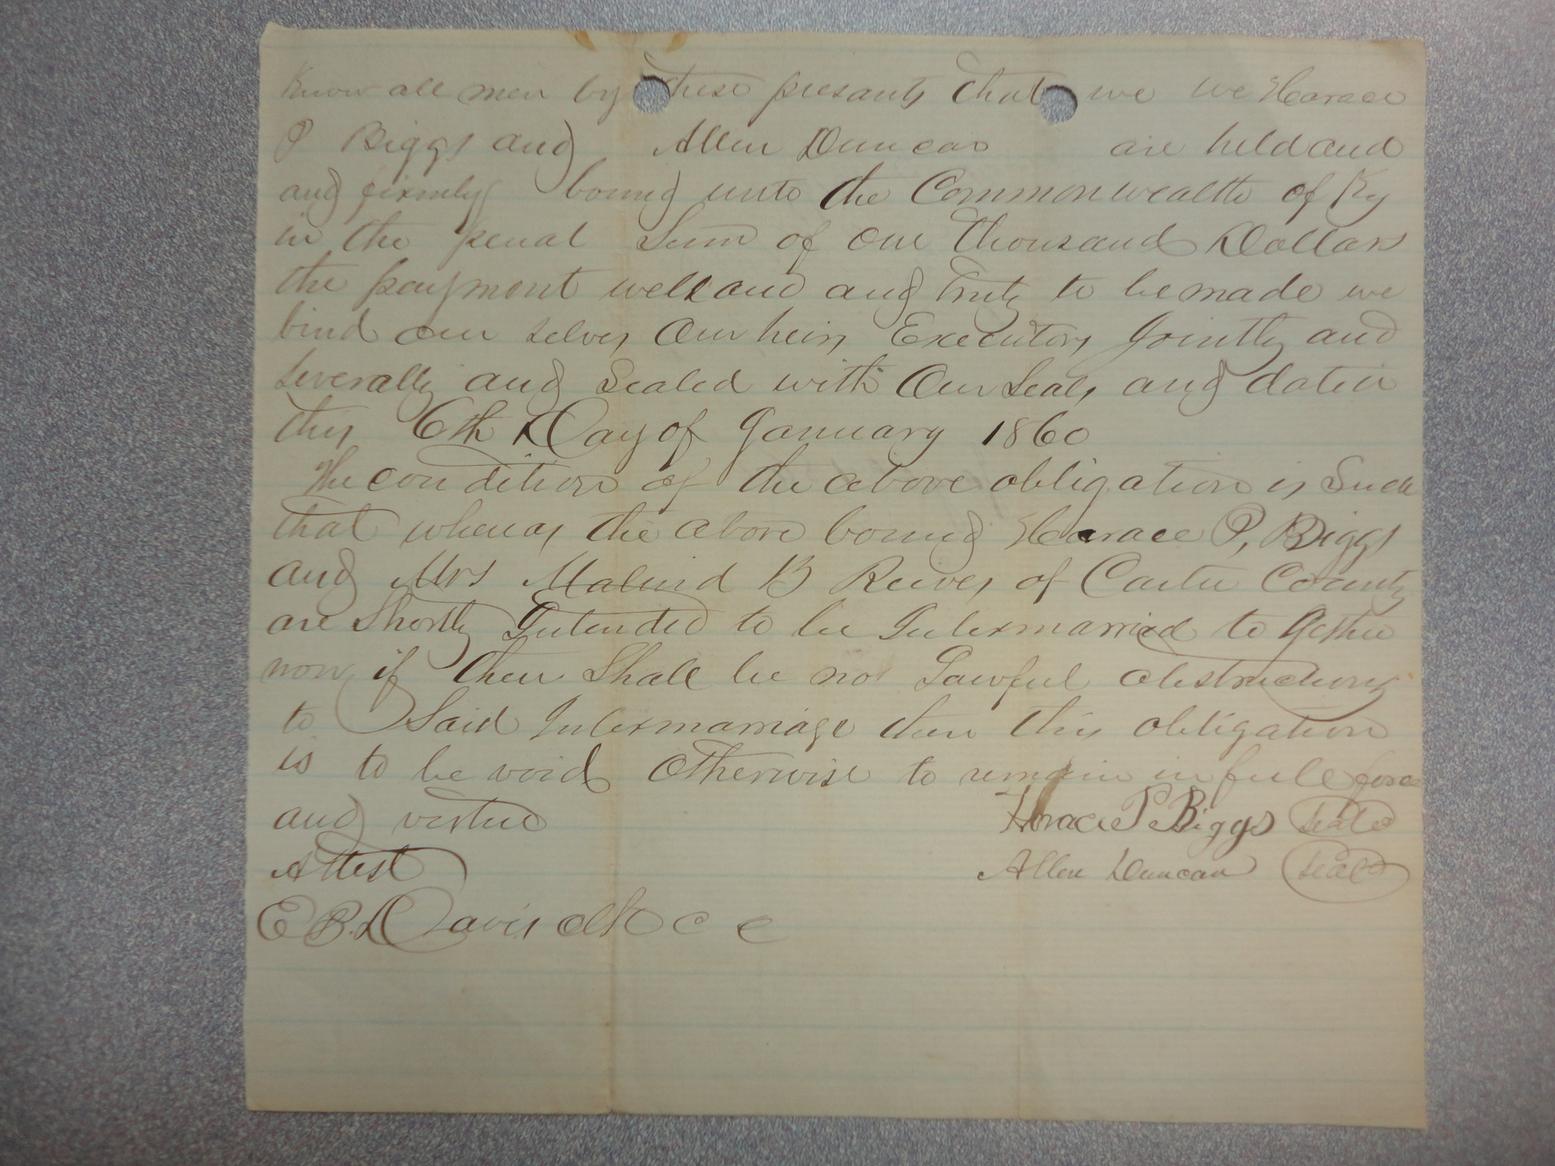 Know all men by these presants that we we Horace
P Biggs and Allen Duncan are held and
and firmly bound unto the Commonwealth of Ky
in the penal Sum of One Thousand Dollars
the payment well and and Truly to be made we
bind our selves Our heirs Executors Jointly and
Severally and Sealed with Our Seals and dated
this 6th Day of January 1860
The condition of the above obligation is Such
that whereas the above bound Horace P, Biggs
and Mrs Malind B Reives of Carter County
are Shortly Intended to be Intermarried to Gether
now if there Shall be no Lawful obstructions
to Said Intermarriage then this obligation
is to be void Otherwise to remain in full force
and virtue Horace P Biggs Seal
Attest Allen Duncan Seal
E B. Davis clk c c